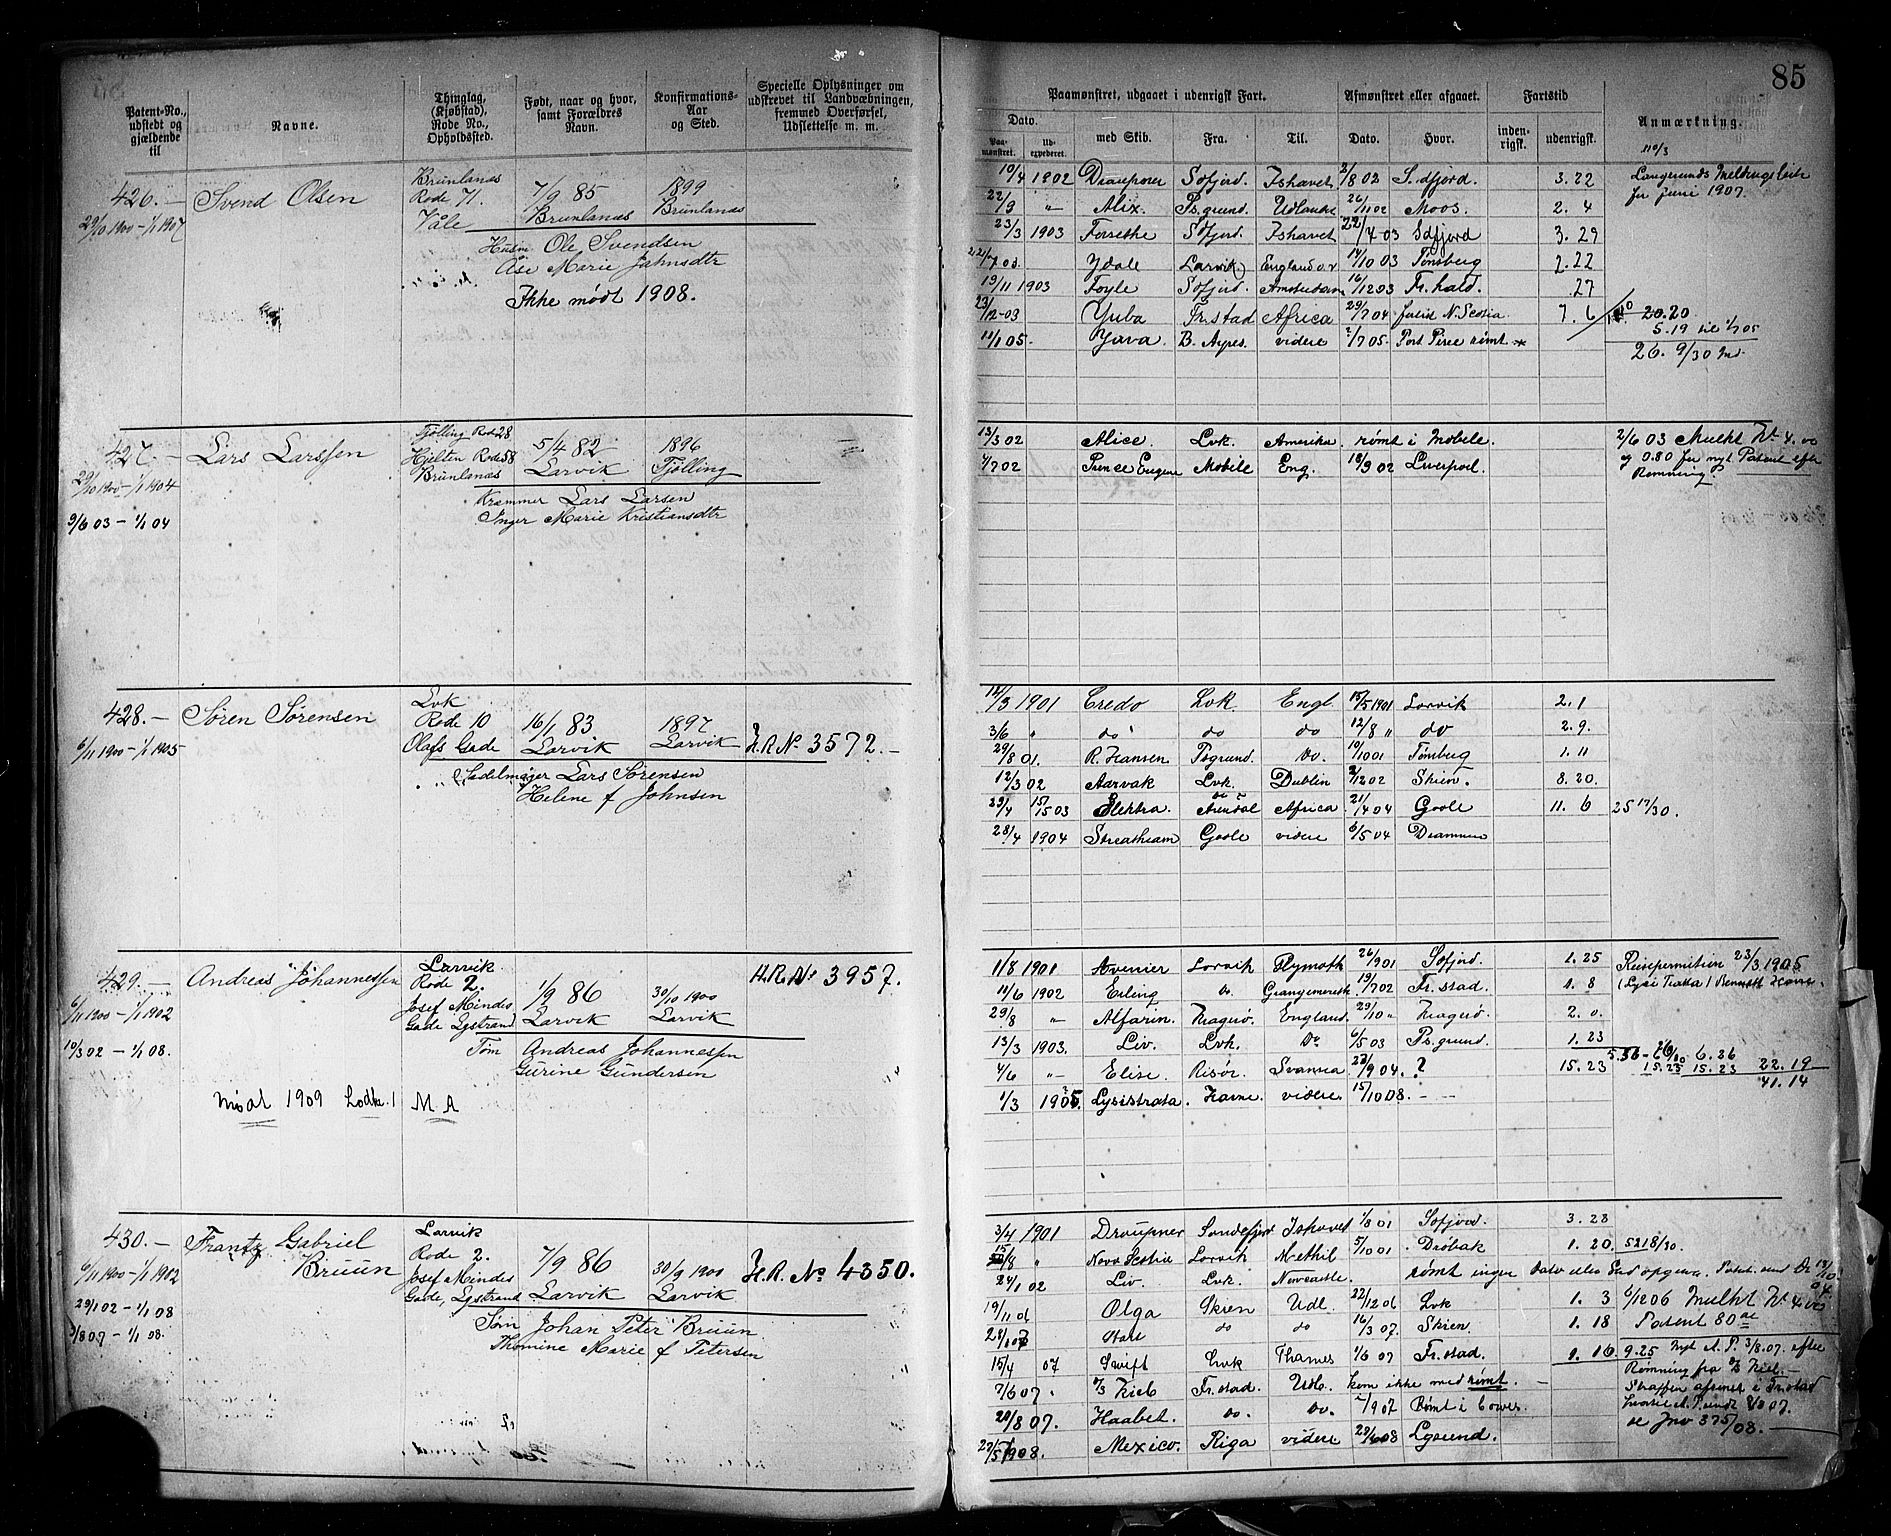 85
Patent-No., udstedt og gjældende til
Navne.
Thinglag, (Kjøbstad), Rode No., Opholdssted.
Født, naar og hvor, samt Forældres Navn.
Konfirmations-Aar og Sted.
Specielle Oplysninger om udstrevet til Landværbningen, fremmed Overførsel, Udslettelse m. m.
Paamønstret, udgaaet i udenrigsk Fart.
Afmønstret eller afgaaet.
Fartstid
Anmærkning.
Dato.
Paa-mønstret.
Ud-expederet.
med Skib.
Fra.
Til.
Dato.
Hvor.
inden-rigsk.
udenrigsk.
426. — Svend Olsen
29/10 1900 – 1/1 1907
Brunlanæs
Rode 71.
Våle
7/9 85
Brunlanæs
1899
Brunlanæs
Husm Ole Svendsen
Åse Marie Jahnsdtr
Ikke mødt 1908.
10/4 1902 Draupner Sofjord. Ishavet 2/8 02 S.dfjord. 3.22
22/9 " Alix. Ps.grund. Udlandet 26/11 02 Moss. 2. 4
23/3 1903 Forsethe Sdfjord. Ishavet 22/7 03 Sdfjord 3. 29
Ydale Larvik England 14/10 03 Tønsberg 2.22
19/11 1903 Foyle Sofjord. Amsterdam 16/12 03 Fr.hald. .27
23/12-03 Yuba Fr.stad Africa 29/7 04 N.Scotia 7. 6
11/1 05. Java. B. Ayres. videre 2/7 05. Port Pirie rømt
Langesunds
for juni 1907.
20.20
5.19 til 1/7 05
26. 9/30 Md.
427. — Lars Larssen
29/10 1900 – 1/1 1904
9/6 03 – 1/1 04
Tjølling Rode 28
Hjelten Rode 58
Brunlanæs
5/4 82
Larvik
1896
Tjølling
Kræmmer Lars Larsen
Inger Marie Kristiansdtr
13/3 02 Alice. Lvk. Amerika. rømt i Mobile.
4/7 02 Prince Eugene Mobile Eng. 18/9 02 Liverpool.
2/6 03 Mulkt Kr 4.00
og 0.80 for nyt Patent efter
Rømning.
428. — Søren Sørensen
6/11 1900 – 1/1 1905
Lvk
Rode 10
Olafs Gade
16/1 83
Larvik
1897
Larvik
H.R.No 3572.—
Sadelmager Lars Sørensen
Helene f Johnsen
14/3 1901 Credo Lvk Engl. 15/5 1901 Larvik 2. 1
3/6 " do do do 12/8 " do 2. 9.
29/8 01. R. Hansen Psgrund. do. 10/10 01 Tønsberg 1. 11
12/3 02 Aarvak Lvk. Dublin 2/12 02 Skien. 8. 20.
29/4 15/5 03 Elektra. Arendal Africa 21/4 04 Goole 11. 6 25 17/30.
28/4 1904 Streatheam Goole videre 6/5 04 Drammen
429. — Andreas Johannessen
6/11 1900 – 1/1 1902
10/3 02 – 1/1 08.
Larvik
Rode 2.
Josef Mindes
Gade Lystrand
1/9 86
Larvik
30/10 1900
Larvik
H.R.No 3957.
Tøm Andreas Johannessen
Gurine Gundersen
Mødt 1909 Lodtr. 1 M A
1/8 1901 Avenier Larvik Plymoth 26/9 01 Sofjord. 1. 25
11/6 1902 Erling do. Grangemouth 19/7 02 Fr.stad. 1. 8
29/8 " Alfarin. Kragerø. England. 29/10 " Kragerø. 2. 0.
13/3 1903. Liv. Lvk. Do 6/5 03 Ps.grund. 1. 23
4/6 " Elise. Risør. Svansea 27/9 04. ? 15. 23
1/3 1905 Lysistrata. Havre. videre. 15/10 08.
Reisepermission 23/3 1905
6.26
15.23 15.23 22.19
41.14
430. — Frantz Gabriel
Bruun
6/11 1900 – 1/1 1902
29/1 02 – 1/1 08
3/8 07 – 1/1 08.
Larvik
Rode 2.
Josef Mindes
Gade, Lystrand
7/9 86
Larvik
30/9 1900
Larvik
H.R. No 4350.
Søm Johan Peter Bruun
Thomine Marie f Petersen
3/4 1901 Draupner Sandefjord Ishavet 1/8 01 Sofjord. 3. 28
Nova Scotia Larvik Methil 5/10 01 Drøbak 1. 20. 5218/30.
24/1 02 Liv. Lvk. Newcastle. rømt ingen Dato eller Sted opgivn.
19/11 06 Olga Skien Udl. 22/12 06 Lvk 1. 3 6/12 06 Mulkt Kr 4
28/1 07 do do 16/3 07. Skien. 1. 18 Patent 80 øre
15/4 07 Swift Lvk Thames 1/6 07 Fr.stad. 1. 16 9.25 Nyt A. P. 3/8.07. efter
7/6 07. D/S Kieb Fr.stad. Udl. kom ikke med rømt. Rømning fra D/S Kieb.
Straffen afsonet i Fr.stad
20/8 07. Haabet do. do. 2/9 07 Rømt i Cowes.
se Jno 375/08.
27/5 1908. Mexico. Riga videre 29/6 08 Lysund.